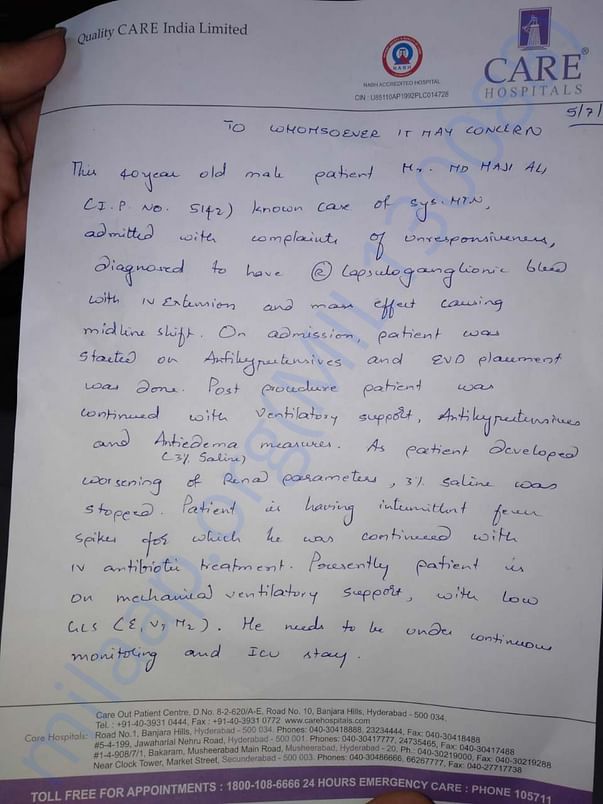 Quality CARE India Limited
NABH ACCREDITED HOSPITAL
CIN : U85110AP1992PLC014728
CARE®
HOSPITALS
5/7/
TO WHOMSOEVER IT MAY CONCERN
This 40 year old male patient Mr. MD HAJI ALI
(I.P. NO. 5142) known case of sys. HTN,
admitted with complaints of unresponsiveness,
diagnosed to have capsuloganglionic bleed
with IV Extension and mass effect causing
midline shift. On admission, patient was
started on Antihypertensives and EVD placement
was done. Post procedure patient was
continued with ventilatory support, Antihypertensives
and Antiedema measures. As patient developed
(3% Saline)
worsening of Renal parameters, 3% saline was
stopped. Patient is having intermittent fever
spikes for which he was continued with
IV antibiotic treatment. Presently patient is
on mechanical ventilatory support, with low
GCS (E, VT M2). He needs to be under continuous
monitoring and ICU stay.
milaap.org(MIL1300
Care Out Patient Centre, D.No. 8-2-620/A-E, Road No. 10, Banjara Hills, Hyderabad - 500 034.
Tel. : +91-40-3931 0444, Fax : +91-40-3931 0772 www.carehospitals.com
Care Hospitals: Road No.1, Banjara Hills, Hyderabad - 500 034. Phones: 040-30418888, 23234444, Fax: 040-30418488
#5-4-199, Jawaharlal Nehru Road, Hyderabad - 500 001. Phones: 040-30417777, 24735465, Fax: 040-30417488
#1-4-908/7/1, Bakaram, Musheerabad Main Road, Musheerabad, Hyderabad - 20, Ph.: 040-30219000, Fax: 040-30219288
Near Clock Tower, Market Street, Secunderabad - 500 003. Phone: 040-30486666, 66267777, Fax: 040-27717738
TOLL FREE FOR APPOINTMENTS : 1800-108-6666 24 HOURS EMERGENCY CARE : PHONE 105711